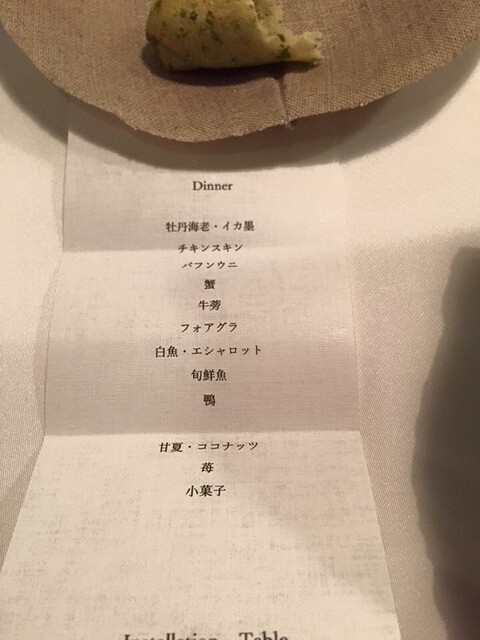 Dinner
牡丹海老・イカ墨
チキンスキン
バフンウニ
蟹
牛蒡
フォアグラ
白魚・エシャロット
旬鮮魚
鴨
甘夏・ココナッツ
苺
小菓子
Installation Table